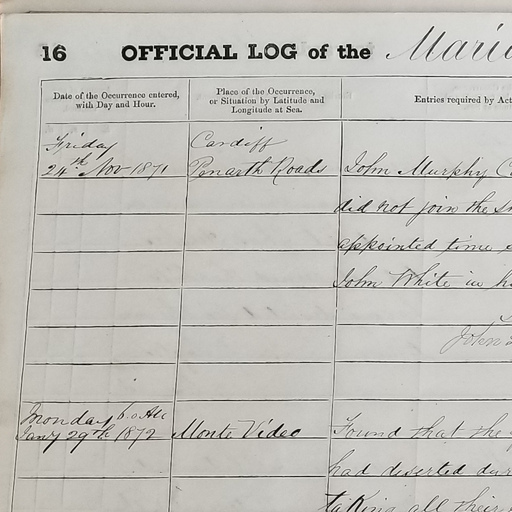 16 OFFICIAL LOG of the
Date of the Occurrence entered, with Day and Hour.
Place of the Occurrence, or Situation by Latitude and Longitude at Sea.
Entries required by Act
Friday Cardiff
24th Nov 1871 Penarth Roads John Murphy
did not join the
appointed time
John White in
John
Monday 6.0 AM
Jany 29th 1872 Monte Video Found that the
had deserted
taking all their